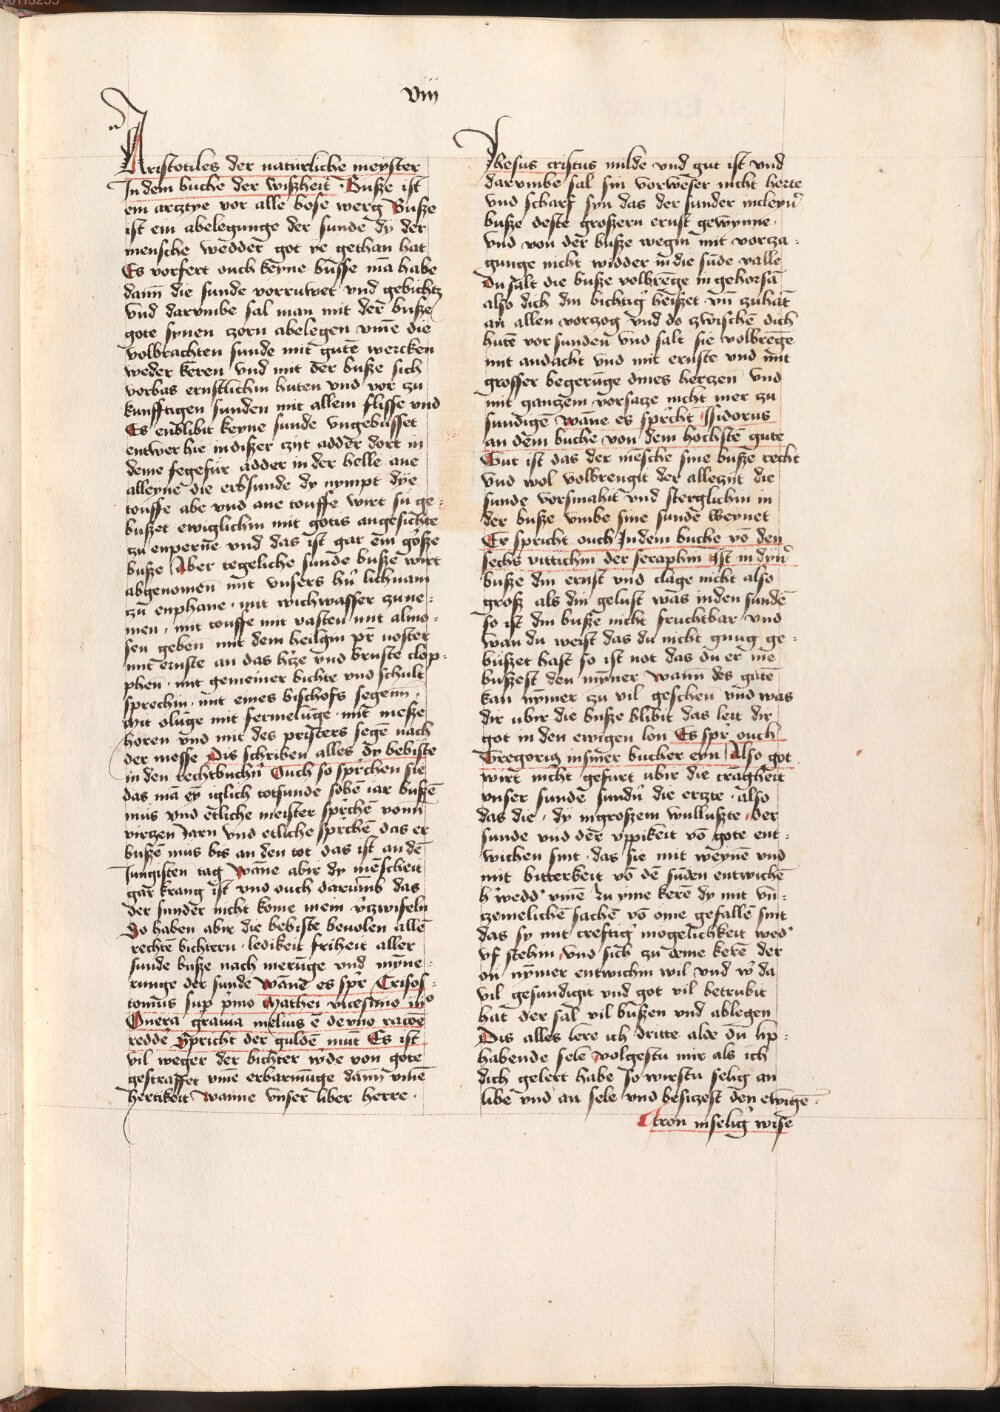 viij
Aristotiles der naturliche meyster
In dem buche der wißheit · Buße ist
ein arcztye vor alle bose werg Buße
ist ein abelegunge der sunde dy der
mensche wedder got ye gethan hat
Es vorfert ouch keyne busse mā habe
dann die sunde vorruwet vnd gebichtz
Vnd darvmbe sal man mit der buße
gote synen zorn abelegen vme die
volbrachten sunde mit gutē wercken
weder keren vnd mit der buße sich
vorbas ernstlichin huten vnd vor zu
kunfftigen sunden mit allem flisse vnd
Es enblibit keyne sunde vngebusset
entwer hie in dißer czijt adder dort in
deme fegefur adder in der helle ane
alleyne die erbsunde dy nympt dye
touffe abe vnd ane touffe wirt sü ge-
bußet ewiglichin mit gotis angesichte
zu enperne vnd das ist gar ein große
buße Aber tegeliche sunde buße wirt
abgenomen mit vnsers hrn̄ lichnam
zu enphane · mit wichwasser zu ne-
men · mit touffe mit vasten mit almo-
sen geben mit dem heilgin pr̄ noster
mit ernste an das hcze vnd bruste clop-
phen · mit gemeiner bichte vnd schult
sprechin · mit eines bischofs segenn ·
mit olūge mit fermelūge · mit messe
horen vnd mit des pristers segē nach
der messe Dis schriben alles dy bebiste
in den rechtbuchn̄ Ouch so sprechen sie
das mā ey iglich totsunde sobē iar bußē
mus vnd etliche meister sprechē vonn
virczen Jarn vnd etliche sprechē das er
bußē mus bis an den tot das ist an dē
Jungisten tag Wāne abir dy mēscheit
gar krang ist vnd ouch darumb das
der sunder nicht kome inem vczwifeln
So haben abir die bebiste beuolen allē
rechtē bichtern · ledikeit friheit aller
sunde buße nach merūge vnd mynne-
runge der sunde Wāne es spr Crisos-
tomus sup p̄mo Mathei vicesimo iijo
Onera grauia melius ē de vno racōe
reddē Spricht der guldē munt Es ist
vil weger der bichter wde von gote
gestraffet vme erbarmūge dann vme
hertikeit Wanne vnser liber herre ·
Jhesus cristus milde vnd gut ist vnd
darvmbe sal sin vorweser nicht herte
vnd scharf syn das der sunder
buße deste großern ernst gewynne ·
vnd von der buße wegin mit vorcza-
gunge nicht widder in die sūde valle
Du salt die buße volbrēge in gehorsā
also dich din bichtig heißet vn̄ zuhāt
an allen vorzog vnd do zwischē dich
hutē vor sunden vnd salt sie volbrēge
mit andacht vnd mit ernste vnd mit
grosser begerūge dines herczen vnd
mit ganczem vorsatze nicht mer zu
sundigē Wāne es spricht Isidorus
an dem buche von dem hochstē gute
Gut ist das der mēsche sine buße recht
vnd wol volbrengit der alleczijt die
sunde vorsmahit vnd sterglichin in
der buße vmbe sine sunde weynet
Er spricht ouch In dem buche vō den
sechs vittichin der seraphin Ist in dyn̄
buße din ernst vnd clage nicht also
groß als din gelust was in den sundē
so ist din buße nicht fruchtbar vnd
wan du weist das du nicht gnug ge-
bußet hast so ist not das du er me
bußest den myner wann des gutē
kan nymer zu vil geschen vnd was
dir ubir die buße blibit das leit dir
got in den ewigen lon Es spr ouch
Gregorius in siner bucher eyn Also got
wirt nicht gefurt ubir die tragheit
vnser sundē sundn̄ die ertzte · also
das die · dy in großem wullußte der
sunde vnd der vppikeit vō gote ent-
wichen sint · das sie mit weynē vnd
mit bitterkeit vō dē sūden entwichē
h wedd vme zu yme kerē dy mit vn-
zemelichē sachē vō ome gefallē sint
das sy mit creftig mogelichkeit wed
vf stehin vnd sich zu deme kerē der
on nymer entwichin wil vnd w da
vil gesundigit vnd got vil betrubit
hat der sal vil bußen vnd ablegen
Dis alles lere ich dritte alde dū lip-
habende sele Volgestu mir als ich
dich gelert habe so wirstu selig an
libe vnd an sele vnd besiczest den ewigē-
Cron in selig wise